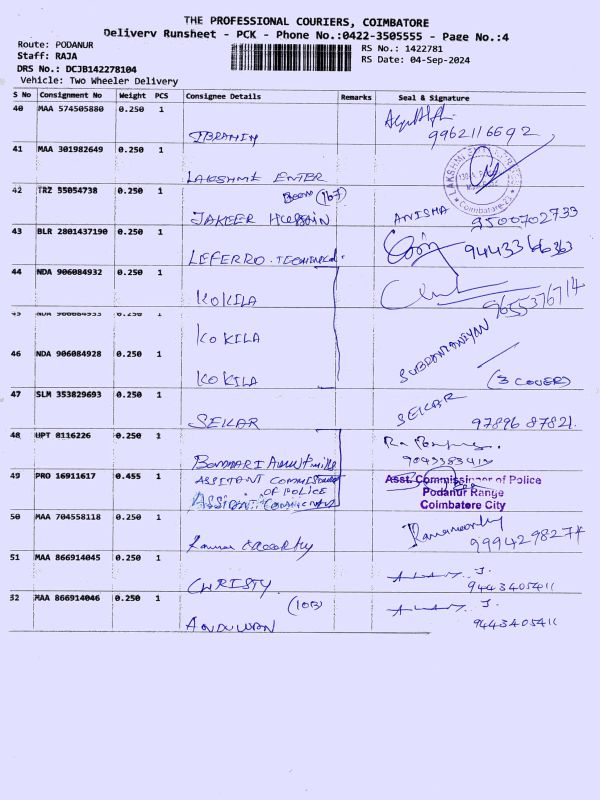 THE PROFESSIONAL COURIERS, COIMBATORE
Delivery Runsheet - PCK - Phone No.:0422-3505555 - Page No.:4
Route: PODANUR
Staff: RAJA
DRS No.: DCJB142278104
Vehicle: Two Wheeler Delivery
RS No.: 1422781
RS Date: 04-Sep-2024
S No Consignment No Weight PCS Consignee Details Remarks Seal & Signature
40 MAA 574505880 0.250 1 IBRAHIM
9962116692
41 MAA 301982649 0.250 1 LAKSHMI ENTER
LAKSHMI
Coimbatore-23
42 TRZ 55054738 0.250 1 JAKEER HUSSAIN (167) ANISHA
9500702733
43 BLR 2801437190 0.250 1 LEFERRO
9443366363
44 NDA 906084932 0.250 1 KOKILA
9655376714
45 NDA 0.250 1 KOKILA
SUBRAMANIYAN
46 NDA 906084928 0.250 1 KOKILA
(3 COVER)
47 SLM 353829693 0.250 1 SEKAR SEKAR
97896 87821
48 UPT 8116226 0.250 1 BOMMARI
49 PRO 16911617 0.455 1 ASSITANT
OF POLICE
Asst. Commissioner of Police
Podanur Range
Coimbatore City
50 MAA 704558118 0.250 1
9994298274
51 MAA 866914045 0.250 1 CHRISTY
9443405411
52 MAA 866914046 0.250 1 (10B)
9443405411